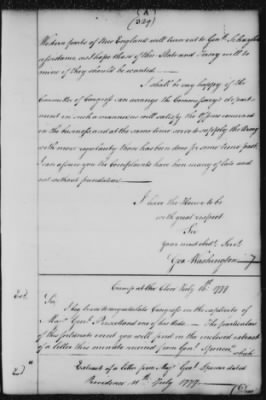 (A)
(329)
Western parts of New England will turn out to Genl. Schuylers
assistance, as I hope those of this State and Jersey will to
mine if they should be wanted.
I shall be very happy if the
Committee of Congress can arrange the Commissary's depart-
ment in such a manner as will satisfy the Officers concerned
in the business and at the same time serve to supply the Army
with more regularity than has been done for some time past.
I can assure you the Complaints have been many of late and
not without foundation
I have the Honor to be
with great respect
Sir
Your most obdt. Servt.
Geo Washington
Camp at the Clove July 16th. 1777
Sir
I beg leave to congratulate Congress on the captivity of
Majr. Genl. Prescott and one of his Aids — The particulars
of this fortunate event you will find in the inclosed extract
of a letter this minute received from Genl. Spencer
which
Extract of a letter from Majr. Genl. Spencer dated
Providence 11th. July 1777.